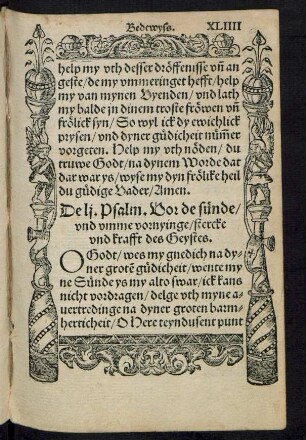 Bedewyſs. XLIIII
help my vth deſſer dröffeniſſe vñ an
geſte / de my vmmeringet hefft / help
my van mynen Vyenden / vnd lath
my balde in dinem troſte fröwen vñ
frölick ſyn / So wyl ick dy ewichlick
pryſen / vnd dyner güdicheit nüm̄er
vorgeten. Help my vth nöden / du
truwe Godt / na dynem Worde dat
dat war ys / wyſe my dyn frölike heil
du güdige Vader / Amen.
De lj. Pſalm. Vor de ſünde /
vnd vmme vornyinge / ſtercke
vnd krafft des Geyſtes.
O Godt / wes my gnedich na dy
ner grotē güdicheit / wente my
ne Sünde ys my alto ſwar / ick kans
nicht vordragen / delge vth myne a
uertredinge na dyner groten barm
herticheit / O Here teyndufent punt